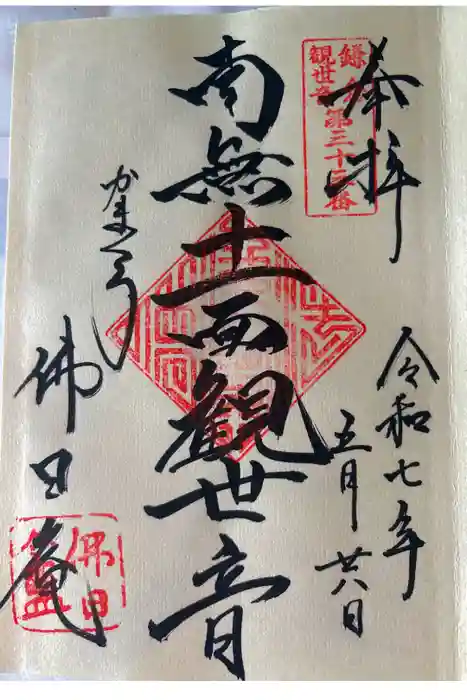 奉拝
鎌倉
観世音
第三十三番
令和七年
五月廿八日
南無十一面観世音
かまくら
佛日庵